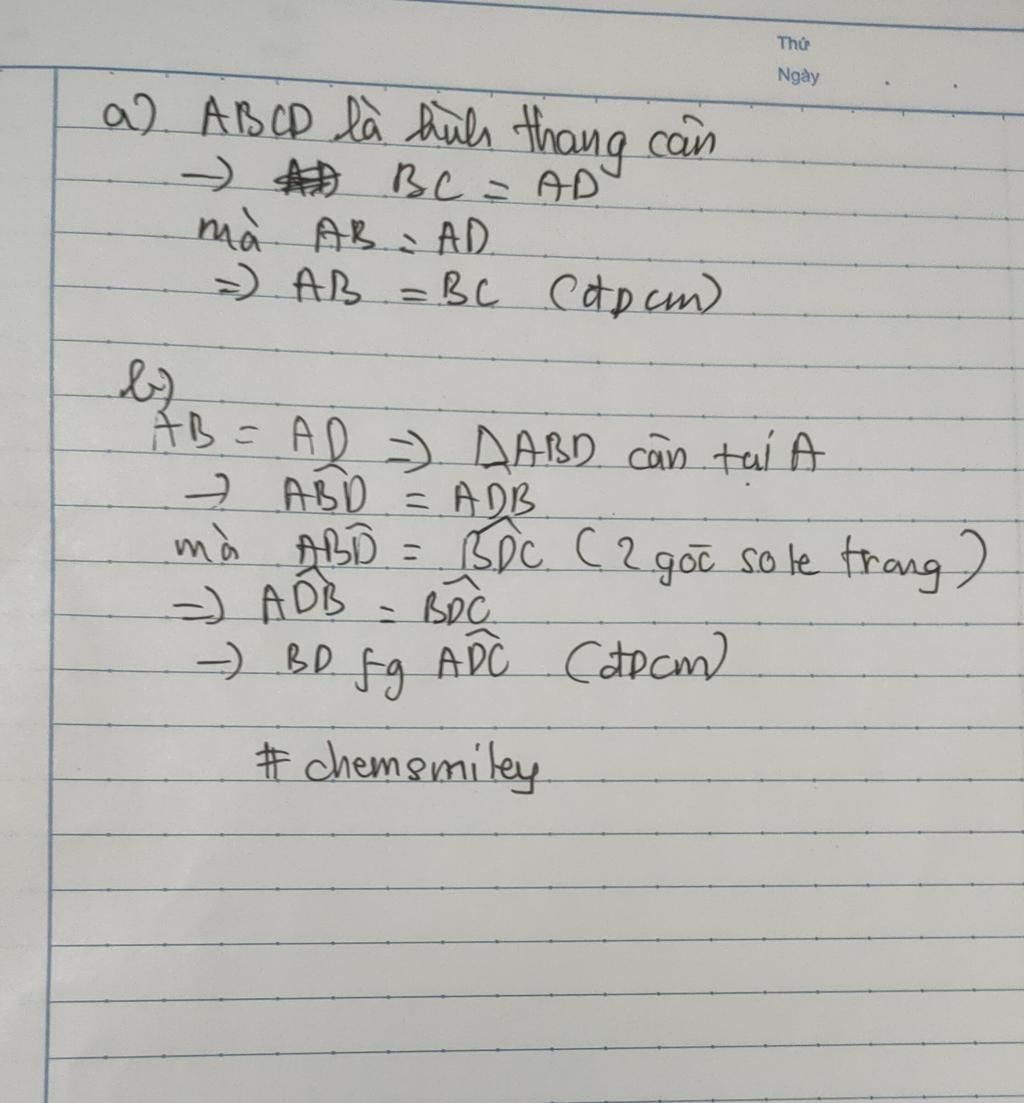 Thứ
Ngày
a) ABCD là hình thang cân
→ BC = AD
mà AB = AD
=> AB = BC (đpcm)
b)
AB = AD => ΔABD cân tại A
→ ABD̂ = ADB̂
mà ABD̂ = BDĈ (2 góc so le trong)
=> ADB̂ = BDĈ
→ BD fg ADĈ (đpcm)
# chemsmiley